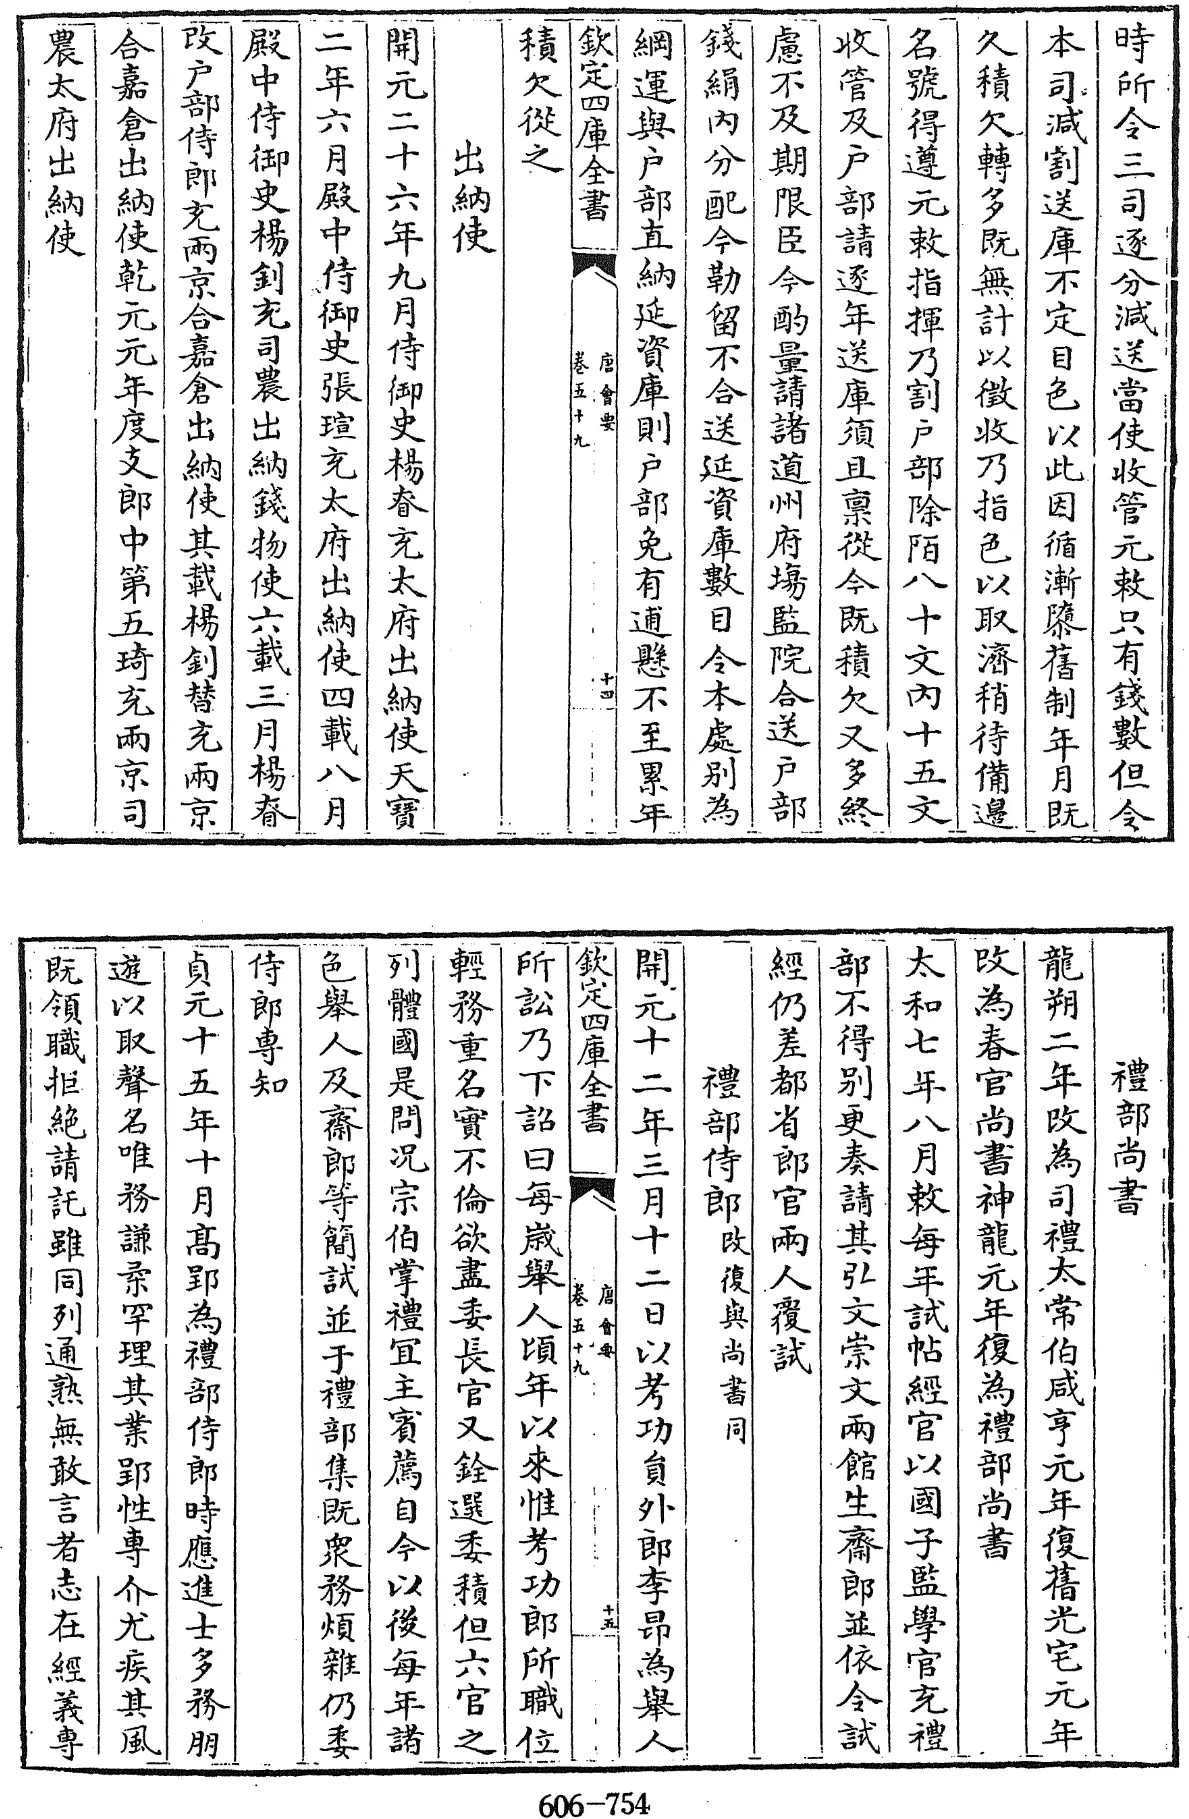 時所令三司逐分減送當使收管元敕只有錢數但令
本司減割送庫不定目色以此因循漸隳舊制年月既
久積欠轉多既無計以徵收乃指色以取濟稍待備邊
名號得遵元敕指揮乃割戶部除陌八十文內十五文
收管及戶部請逐年送庫須且稟從今既積欠又多終
慮不及期限臣今酌量請諸道州府場監院合送戶部
錢絹內分配今勒留不合送延資庫數目令本處別為
綱運與戶部直納延資庫則戶部免有逋懸不至累年
欽定四庫全書
唐會要
卷五十九
十四
積欠從之
出納使
開元二十六年九月侍御史楊眘充太府出納使天寶
二年六月殿中侍御史張瑄充太府出納使四載八月
殿中侍御史楊釗充司農出納錢物使六載三月楊眘
改戶部侍郎充兩京合嘉倉出納使其載楊釗替充兩京
合嘉倉出納使乾元元年度支郎中第五琦充兩京司
農太府出納使
禮部尚書
龍朔二年改為司禮太常伯咸亨元年復舊光宅元年
改為春官尚書神龍元年復為禮部尚書
太和七年八月敕每年試帖經官以國子監學官充禮
部不得別更奏請其弘文崇文兩館生齋郎並依令試
經仍差都省郎官兩人覆試
禮部侍郎改復與尚書同
開元十二年三月十二日以考功員外郎李昂為舉人
欽定四庫全書
唐會要
卷五十九
十五
所訟乃下詔曰每歲舉人頃年以來惟考功郎所職位
輕務重名實不倫欲盡委長官又銓選委積但六官之
列體國是問況宗伯掌禮宜主賓薦自今以後每年諸
色舉人及齋郎等簡試並于禮部集既眾務煩雜仍委
侍郎專知
貞元十五年十月高郢為禮部侍郎時應進士多務朋
遊以取聲名唯務謙柔罕理其業郢性專介尤疾其風
既領職拒絕請託雖同列通熟無敢言者志在經義專
606-754